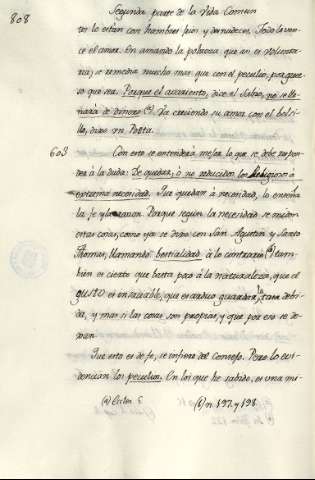 808
Segunda parte de la Vida Comun
tos lo estan con hambres, frios y desnudeces. Todo lo ven-
ce el amor. En amando la pobreza que an es voluntaria
se remedia mucho mas que con el peculio, por grue-
so que sea. Porque el avariento, dice el Sabio, no se lle-
nará de dinero (a). Va creciendo su amor con el bolsi-
llo, dixo un Poeta.
603 Con esto se entenderá mejor lo que se debe respon-
der á la duda: De quedar, ó no reducidos los Religiosos á
extrema necesidad. Que quedan á necesidad, lo enseña
la fe y la razon. Porque segun la necesidad se miden
estas cosas, como ya se dixo con San Agustin y Santo
Thomas, llamando bestialidad á lo contrario (b) Tam-
bien es cierto que basta poco á la naturaleza, que el
gusto es insaciable, que es arduo guardar la tasa debi-
da, y mas si las cosas son propias, y que por eso se de-
xan.
Que esto es de fe, se infiere del Consejo. Pero lo evi-
dencian los peculios. En los que he sabido, es una mi-
(a) Eccles. 5. (b) n. 197. y 198.